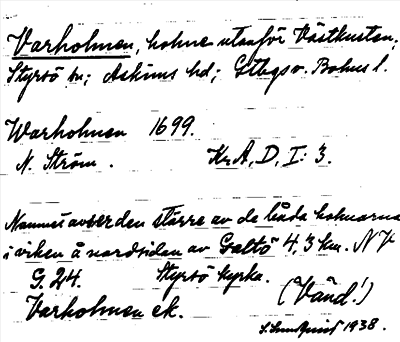 Varholmen, holme utanför Västkusten;
Styrsö sn; Askims hd; Gtbgs o. Bohus l.
Warholmen 1699.
N. Ström. KrA, D, I: 3.
Namnet avser den större av de båda holmarna
i viken å nordsidan av Galtö 4,3 km. NV
G. 24. Styrsö kyrka.
Varholmen ek. (Vänd!)
S. Lundquist 1938.